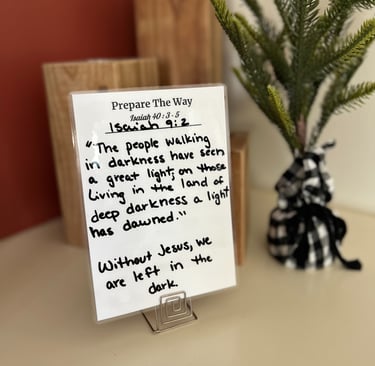 Prepare The Way
Isaiah 40:3-5
Isaiah 9:2
"The people walking
in darkness have seen
a great light; on those
Living in the land of
deep darkness a light
has dawned."
Without Jesus, we
are left in the
dark.